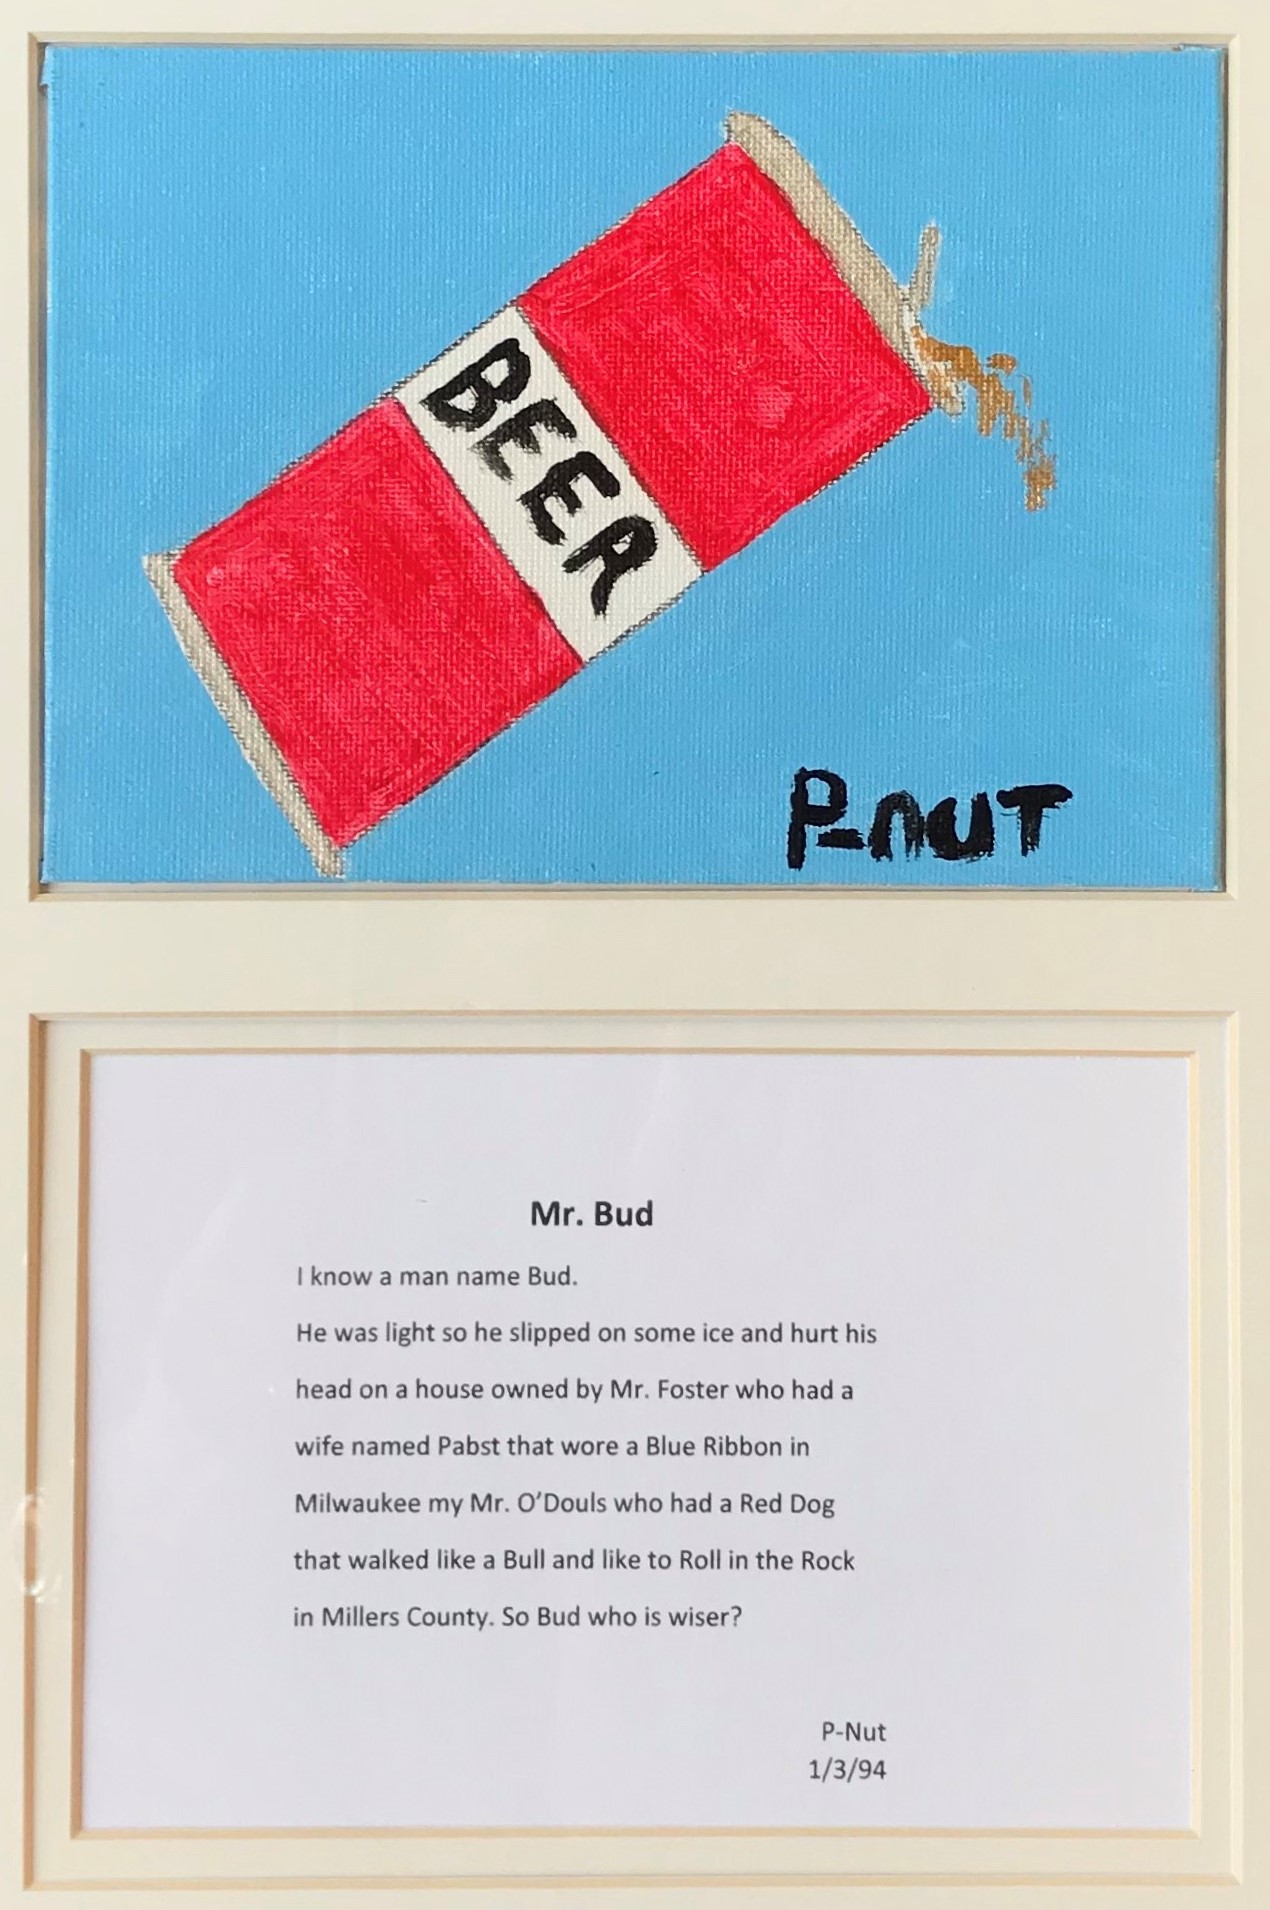 BEER
P-nUT
Mr. Bud
I know a man name Bud.
He was light so he slipped on some ice and hurt his
head on a house owned by Mr. Foster who had a
wife named Pabst that wore a Blue Ribbon in
Milwaukee my Mr. O’Douls who had a Red Dog
that walked like a Bull and like to Roll in the Rock
in Millers County. So Bud who is wiser?
P-Nut
1/3/94